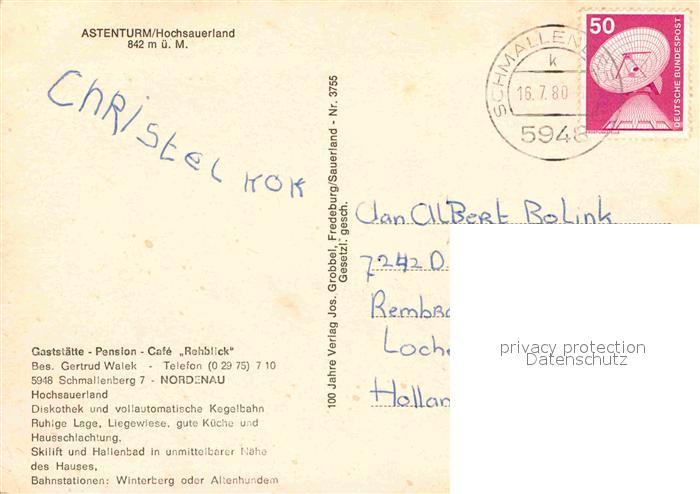 ASTENTURM/Hochsauerland
842 m ü. M.
Christel Kok
Gaststätte - Pension - Café „Rehblick"
Bes. Gertrud Walek - Telefon (0 29 75) 7 10
5948 Schmallenberg 7 - NORDENAU
Hochsauerland
Diskothek und vollautomatische Kegelbahn
Ruhige Lage, Liegewiese, gute Küche und
Hausschlachtung.
Skilift und Hallenbad in unmittelbarer Nähe
des Hauses,
Bahnstationen: Winterberg oder Altenhundem
100 Jahre Verlag Jos. Grobbel, Fredeburg/Sauerland - Nr. 3755
Gesetzl. gesch.
SCHMALLEN
k
16.7.80
5948
50
DEUTSCHE BUNDESPOST
Jan Albert Bolink
7242 D
Rembra
Loche
Hollan
privacy protection
Datenschutz